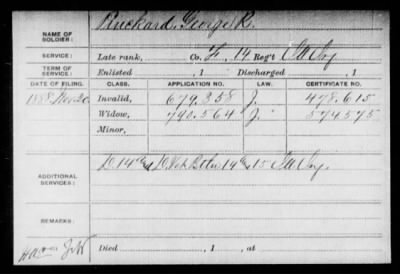 NAME OF SOLDIER: Pinckard, George R.
SERVICE: Late rank, Co. F, 14 Reg't Ill Inf.
TERM OF SERVICE: Enlisted , 1 Discharged , 1
DATE OF FILING. CLASS. APPLICATION NO. LAW. CERTIFICATE NO.
1888 Nov 20 Invalid, 679.358 J. 478.615
Widow, 790.564 J. 574575
Minor,
ADDITIONAL SERVICES: D. 14 & D. Vet Batln 14 & 15 Ill Inf.
REMARKS:
Died , 1 , at